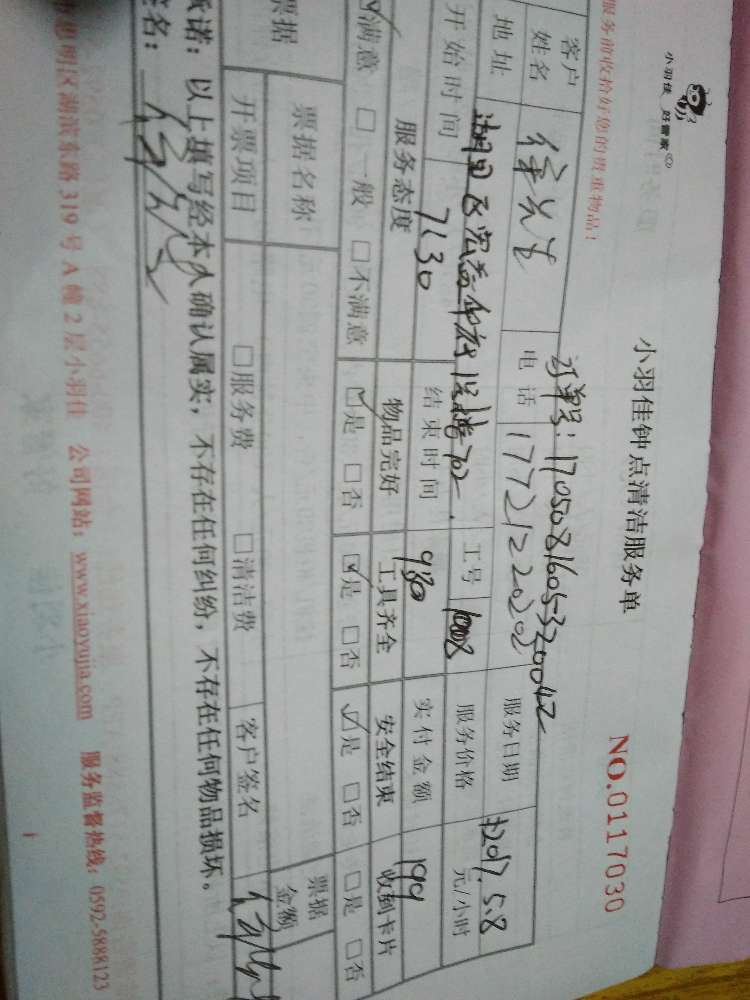 小羽佳 好管家
小羽佳钟点清洁服务单
NO.0117030
服务前收拾好您的贵重物品！
订单号：17050816053720042
客户姓名 徐先生 电话 17721222020 服务日期 2017.5.8
地址 湖里区 702 工号 1008 服务价格 元/小时
开始时间 7:30 结束时间 9:30 实付金额 199
服务态度 物品完好 工具齐全 安全结束 收到卡片
☑满意 □一般 □不满意 ☑是 □否 ☑是 □否 ☑是 □否 □是 □否
票据 票据名称 票据金额
开票项目 □服务费 □清洁费 客户签名
承诺：以上填写经本人确认属实，不存在任何纠纷，不存在任何物品损坏。
签名：
思明区湖滨东路319号A幢2层小羽佳 公司网站：www.xiaoyujia.com 服务监督热线：0592-5888123